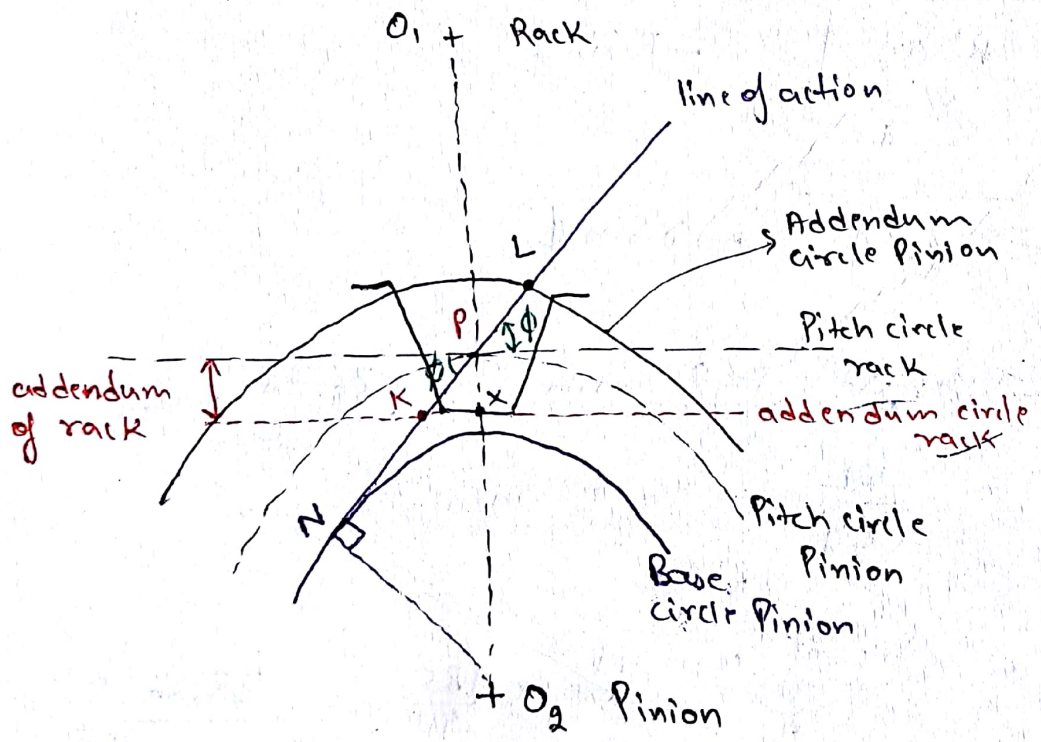 O₁ + Rack
line of action
L
Addendum
circle Pinion
P
ϕ
Pitch circle
rack
ϕ
addendum
of rack
K
X
addendum circle
rack
N
Pitch circle
Pinion
Base
circle Pinion
O₂ Pinion